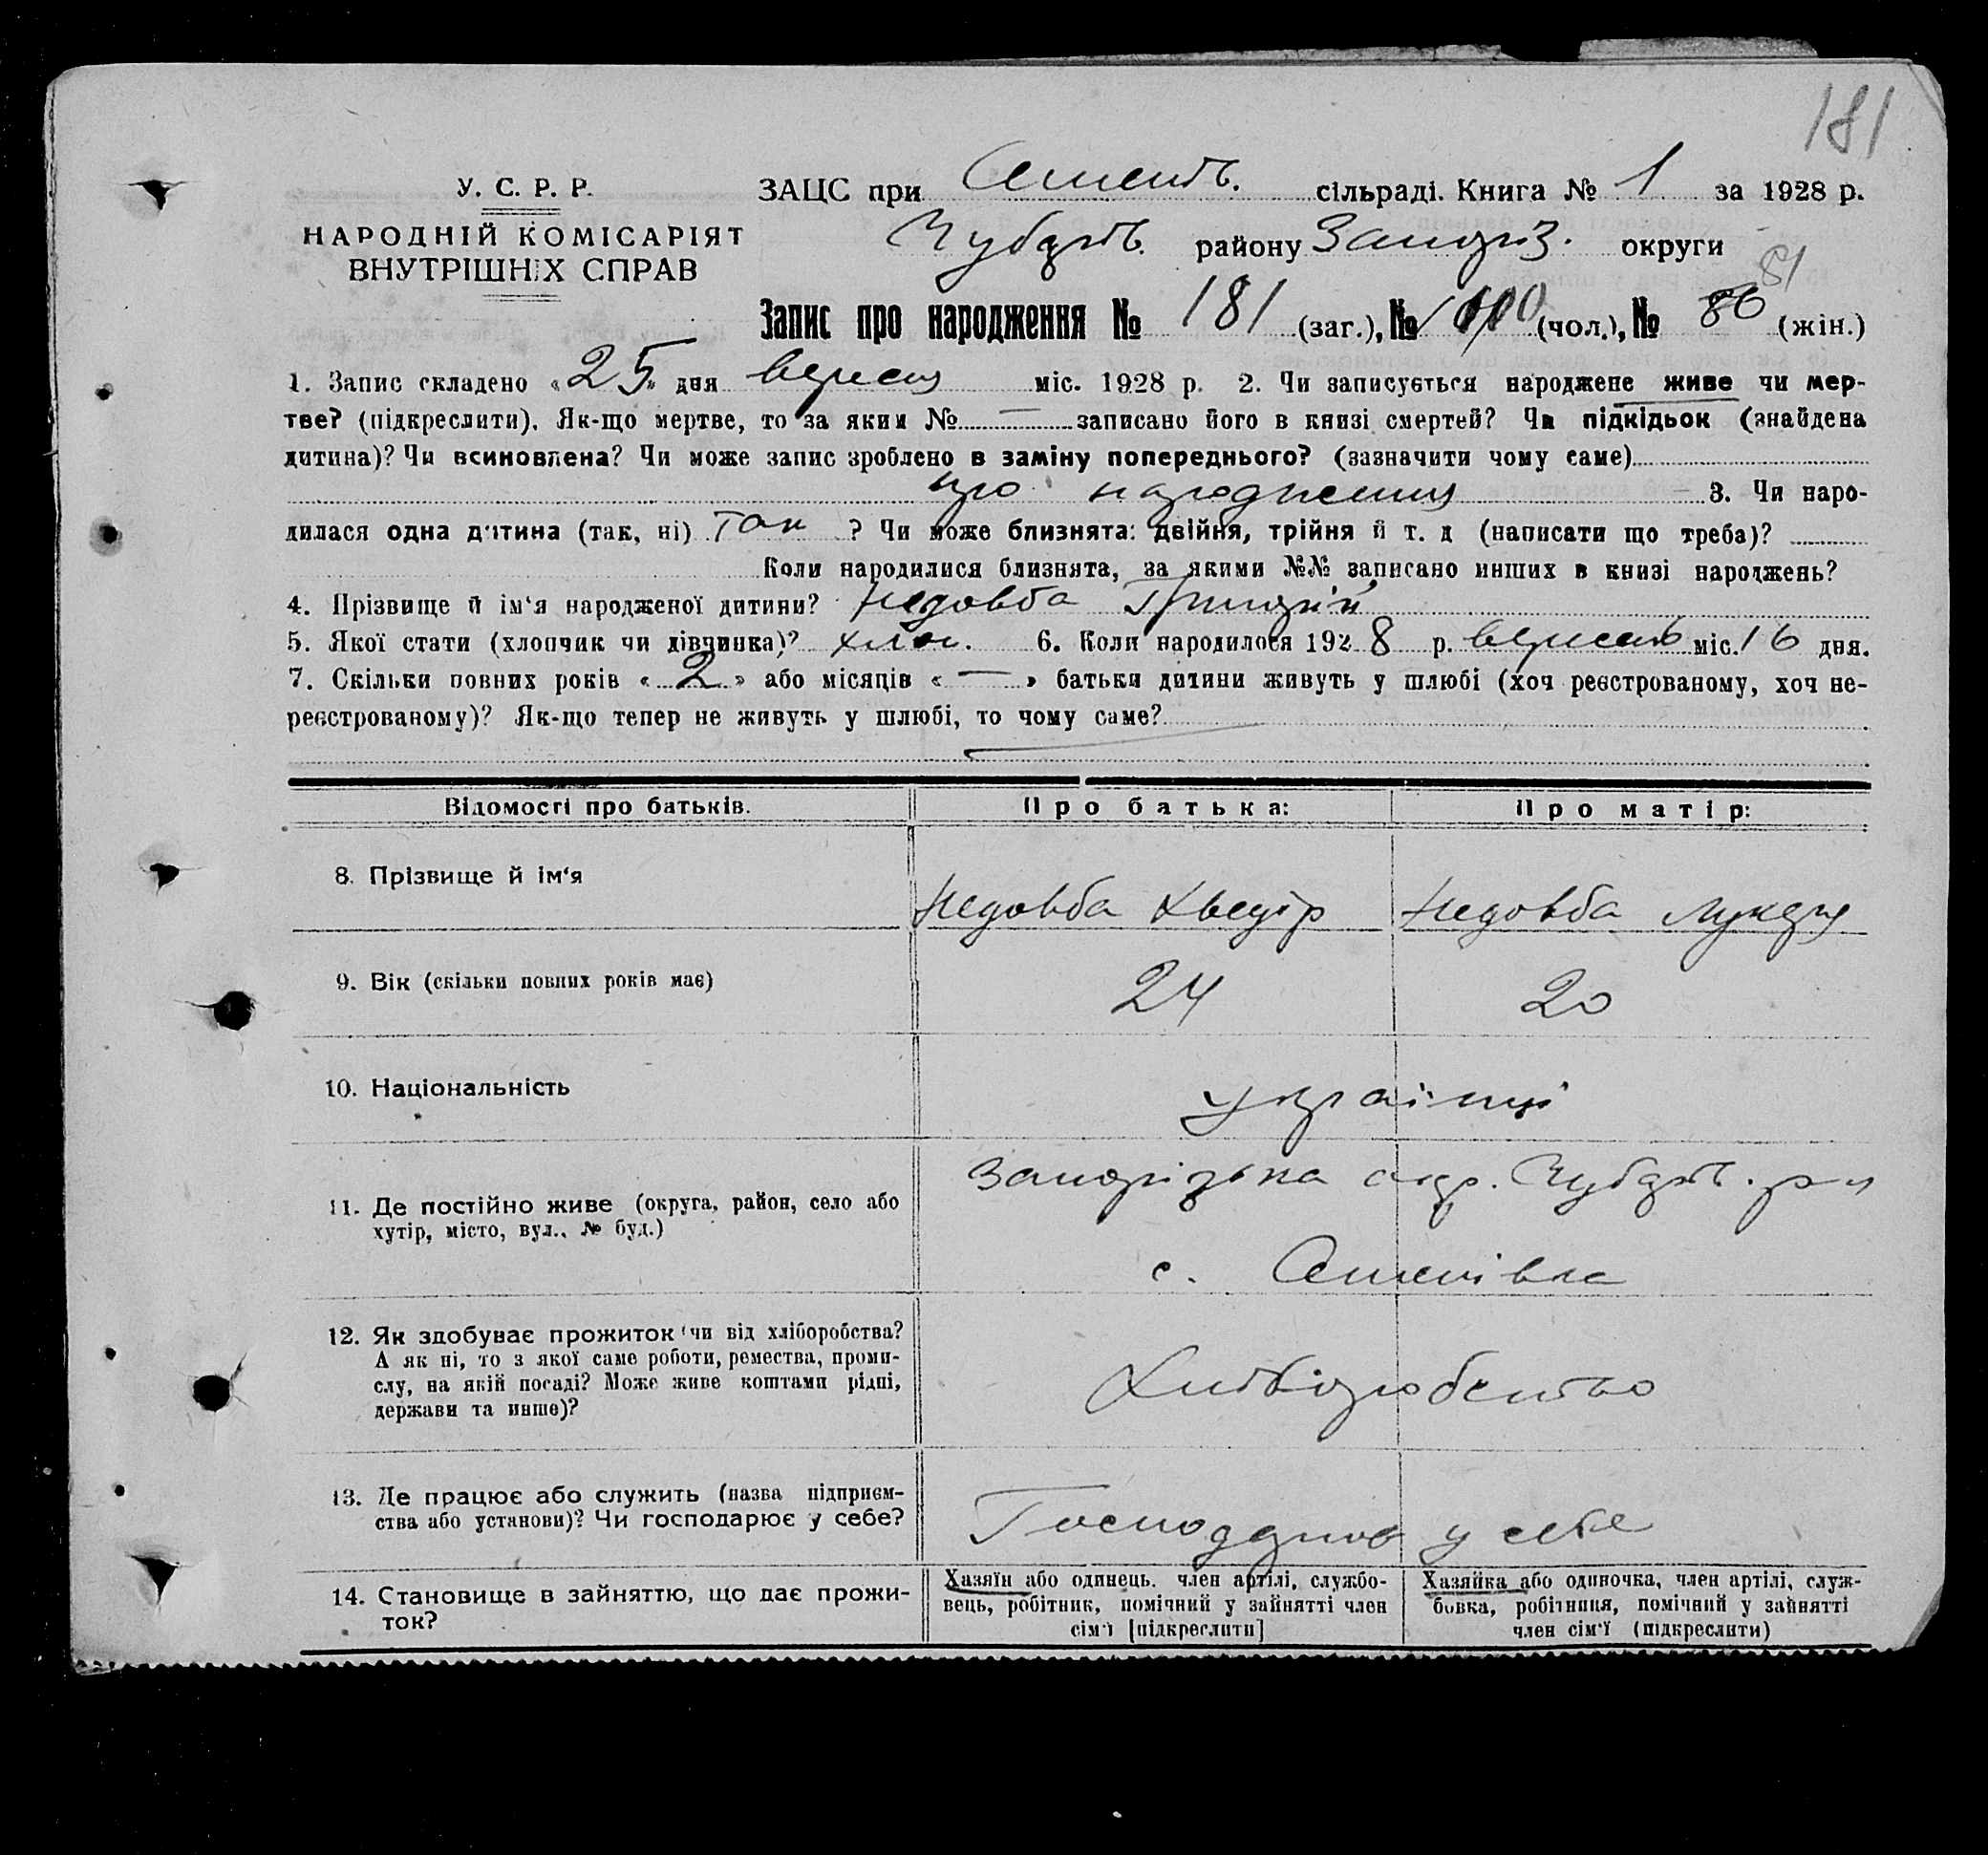 181
У. С. Р. Р.
НАРОДНІЙ КОМІСАРІЯТ
ВНУТРІШНІХ СПРАВ
ЗАЦС при сільраді. Книга № 1 за 1928 р.
Чубарів. району Запоріз. округи
81
Запис про народження № 181 (заг.), № 100 (чол.), № 86 (жін.)
1. Запис складено «25» дня вересня міс. 1928 р. 2. Чи записується народжене живе чи мер-
тве? (підкреслити). Як-що мертве, то за яким № — записано його в книзі смертей? Чи підкідьок (знайдена
дитина)? Чи всиновлена? Чи може запис зроблено в заміну попереднього? (зазначити чому саме)
про народження 3. Чи наро-
дилася одна дитина (так, ні) так ? Чи може близнята: двійня, трійня й т. д (написати що треба)?
Коли народилися близнята, за якими №№ записано инших в книзі народжень?
4. Прізвище й ім'я народженої дитини? Недовба Григорій
5. Якої стати (хлопчик чи дівчинка)? хлоп. 6. Коли народилося 1928 р. вересня міс. 16 дня.
7. Скільки повних років «2» або місяців «—» батьки дитини живуть у шлюбі (хоч реєстрованому, хоч не-
реєстрованому)? Як-що тепер не живуть у шлюбі, то чому саме?
Відомості про батьків. Про батька: Про матір:
8. Прізвище й ім'я Недовба Хведір Недовба Лукеря
9. Вік (скільки повних років має) 24 20
10. Національність українці
11. Де постійно живе (округа, район, село або
хутір, місто, вул., № буд.)
Запорізька окр. Чубарів. р-н
с. Семенівка
12. Як здобуває прожиток чи від хліборобства?
А як ні, то з якої саме роботи, ремества, проми-
слу, на якій посаді? Може живе коштами рідні,
держави та инше)?
Хліборобство
13. Де працює або служить (назва підприєм-
ства або установи)? Чи господарює у себе?
у себе
14. Становище в зайняттю, що дає прожи-
ток?
Хазяїн або одинець. член артілі, службо-
вець, робітник, помічний у зайнятті член
сім'ї [підкреслити]
Хазяйка або одиночка, член артілі, служ-
бовка, робітниця, помічний у зайнятті
член сім'ї (підкреслити)